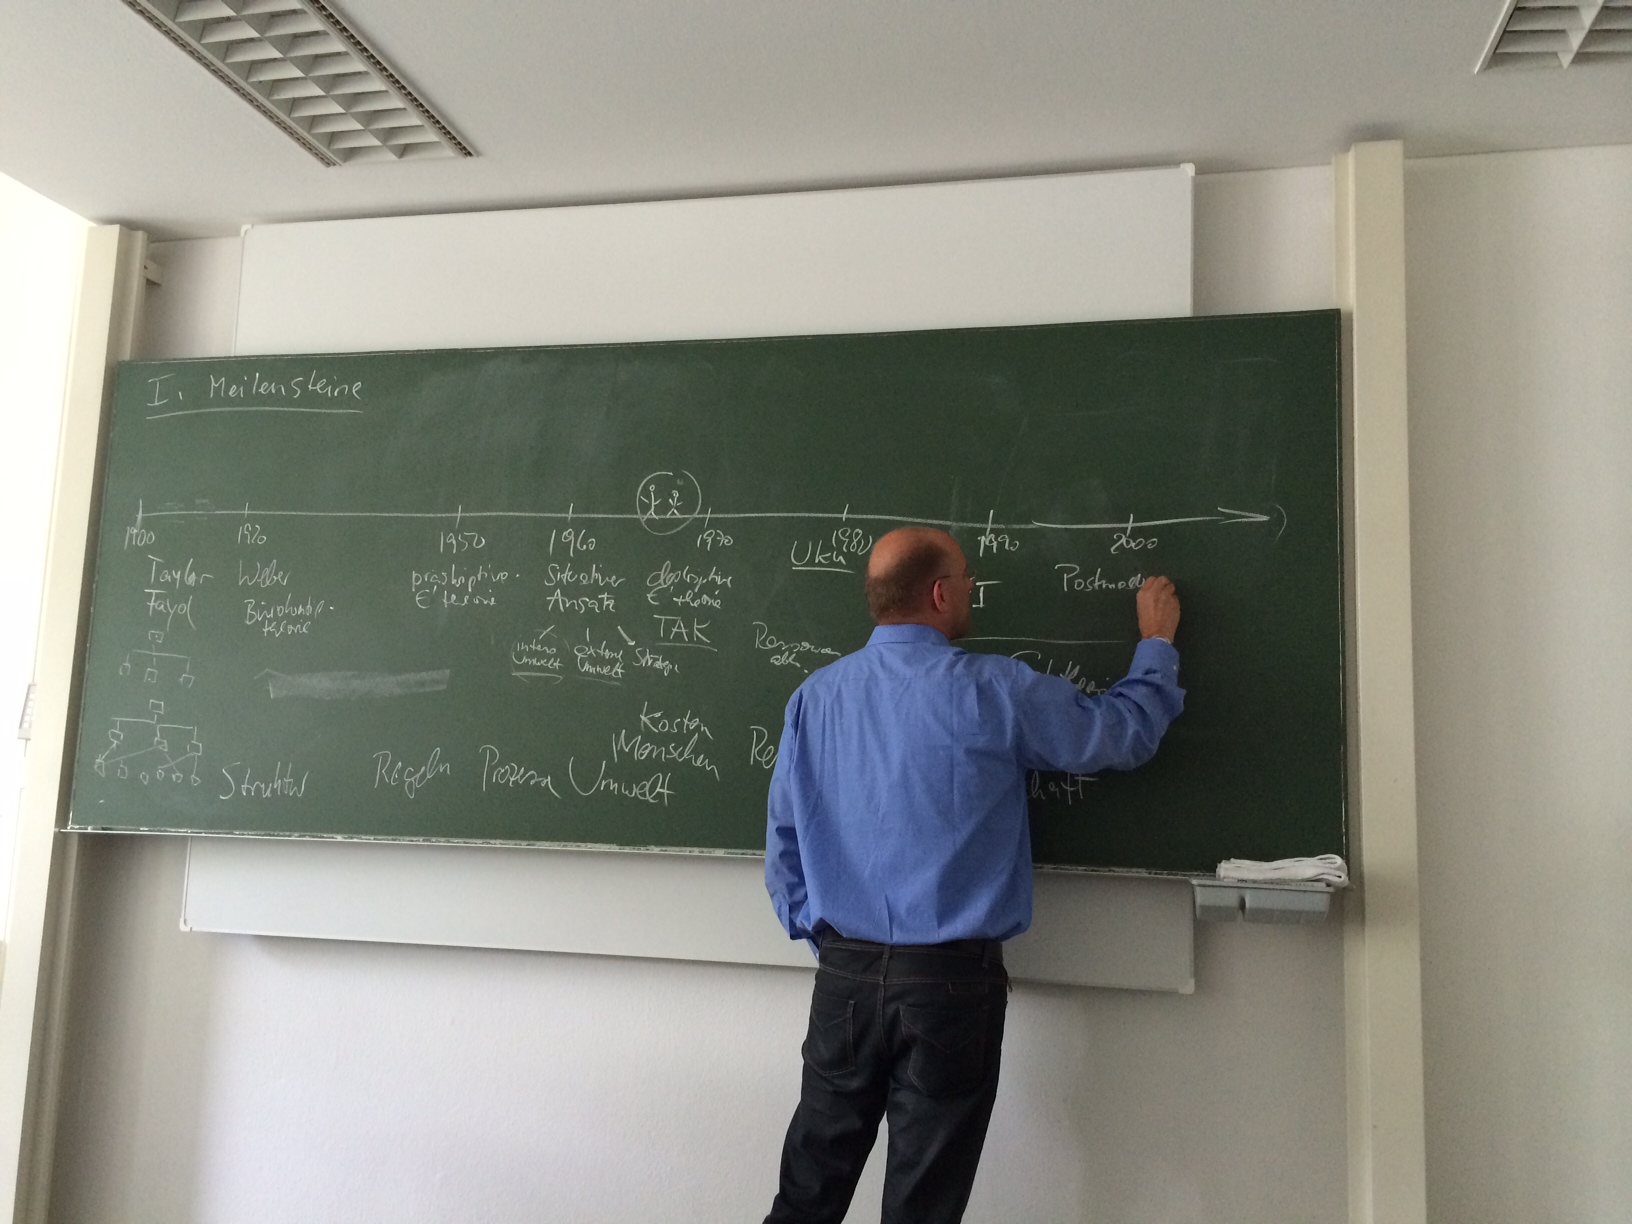 I. Meilensteine
1900 1920 1950 1960 1970 1980 1990 2000
Taylor
Fayol
Weber
Bürokratie-
theorie
präskriptive
E'theorie
Situativer
Ansatz
interne
Umwelt
externe
Umwelt
Strategie
deskriptive
E'theorie
TAK
UKu
Ressourcen
abh.
I
Postmod
Struktur
Regeln
Prozesse
Kosten
Menschen
Umwelt
Re
haft